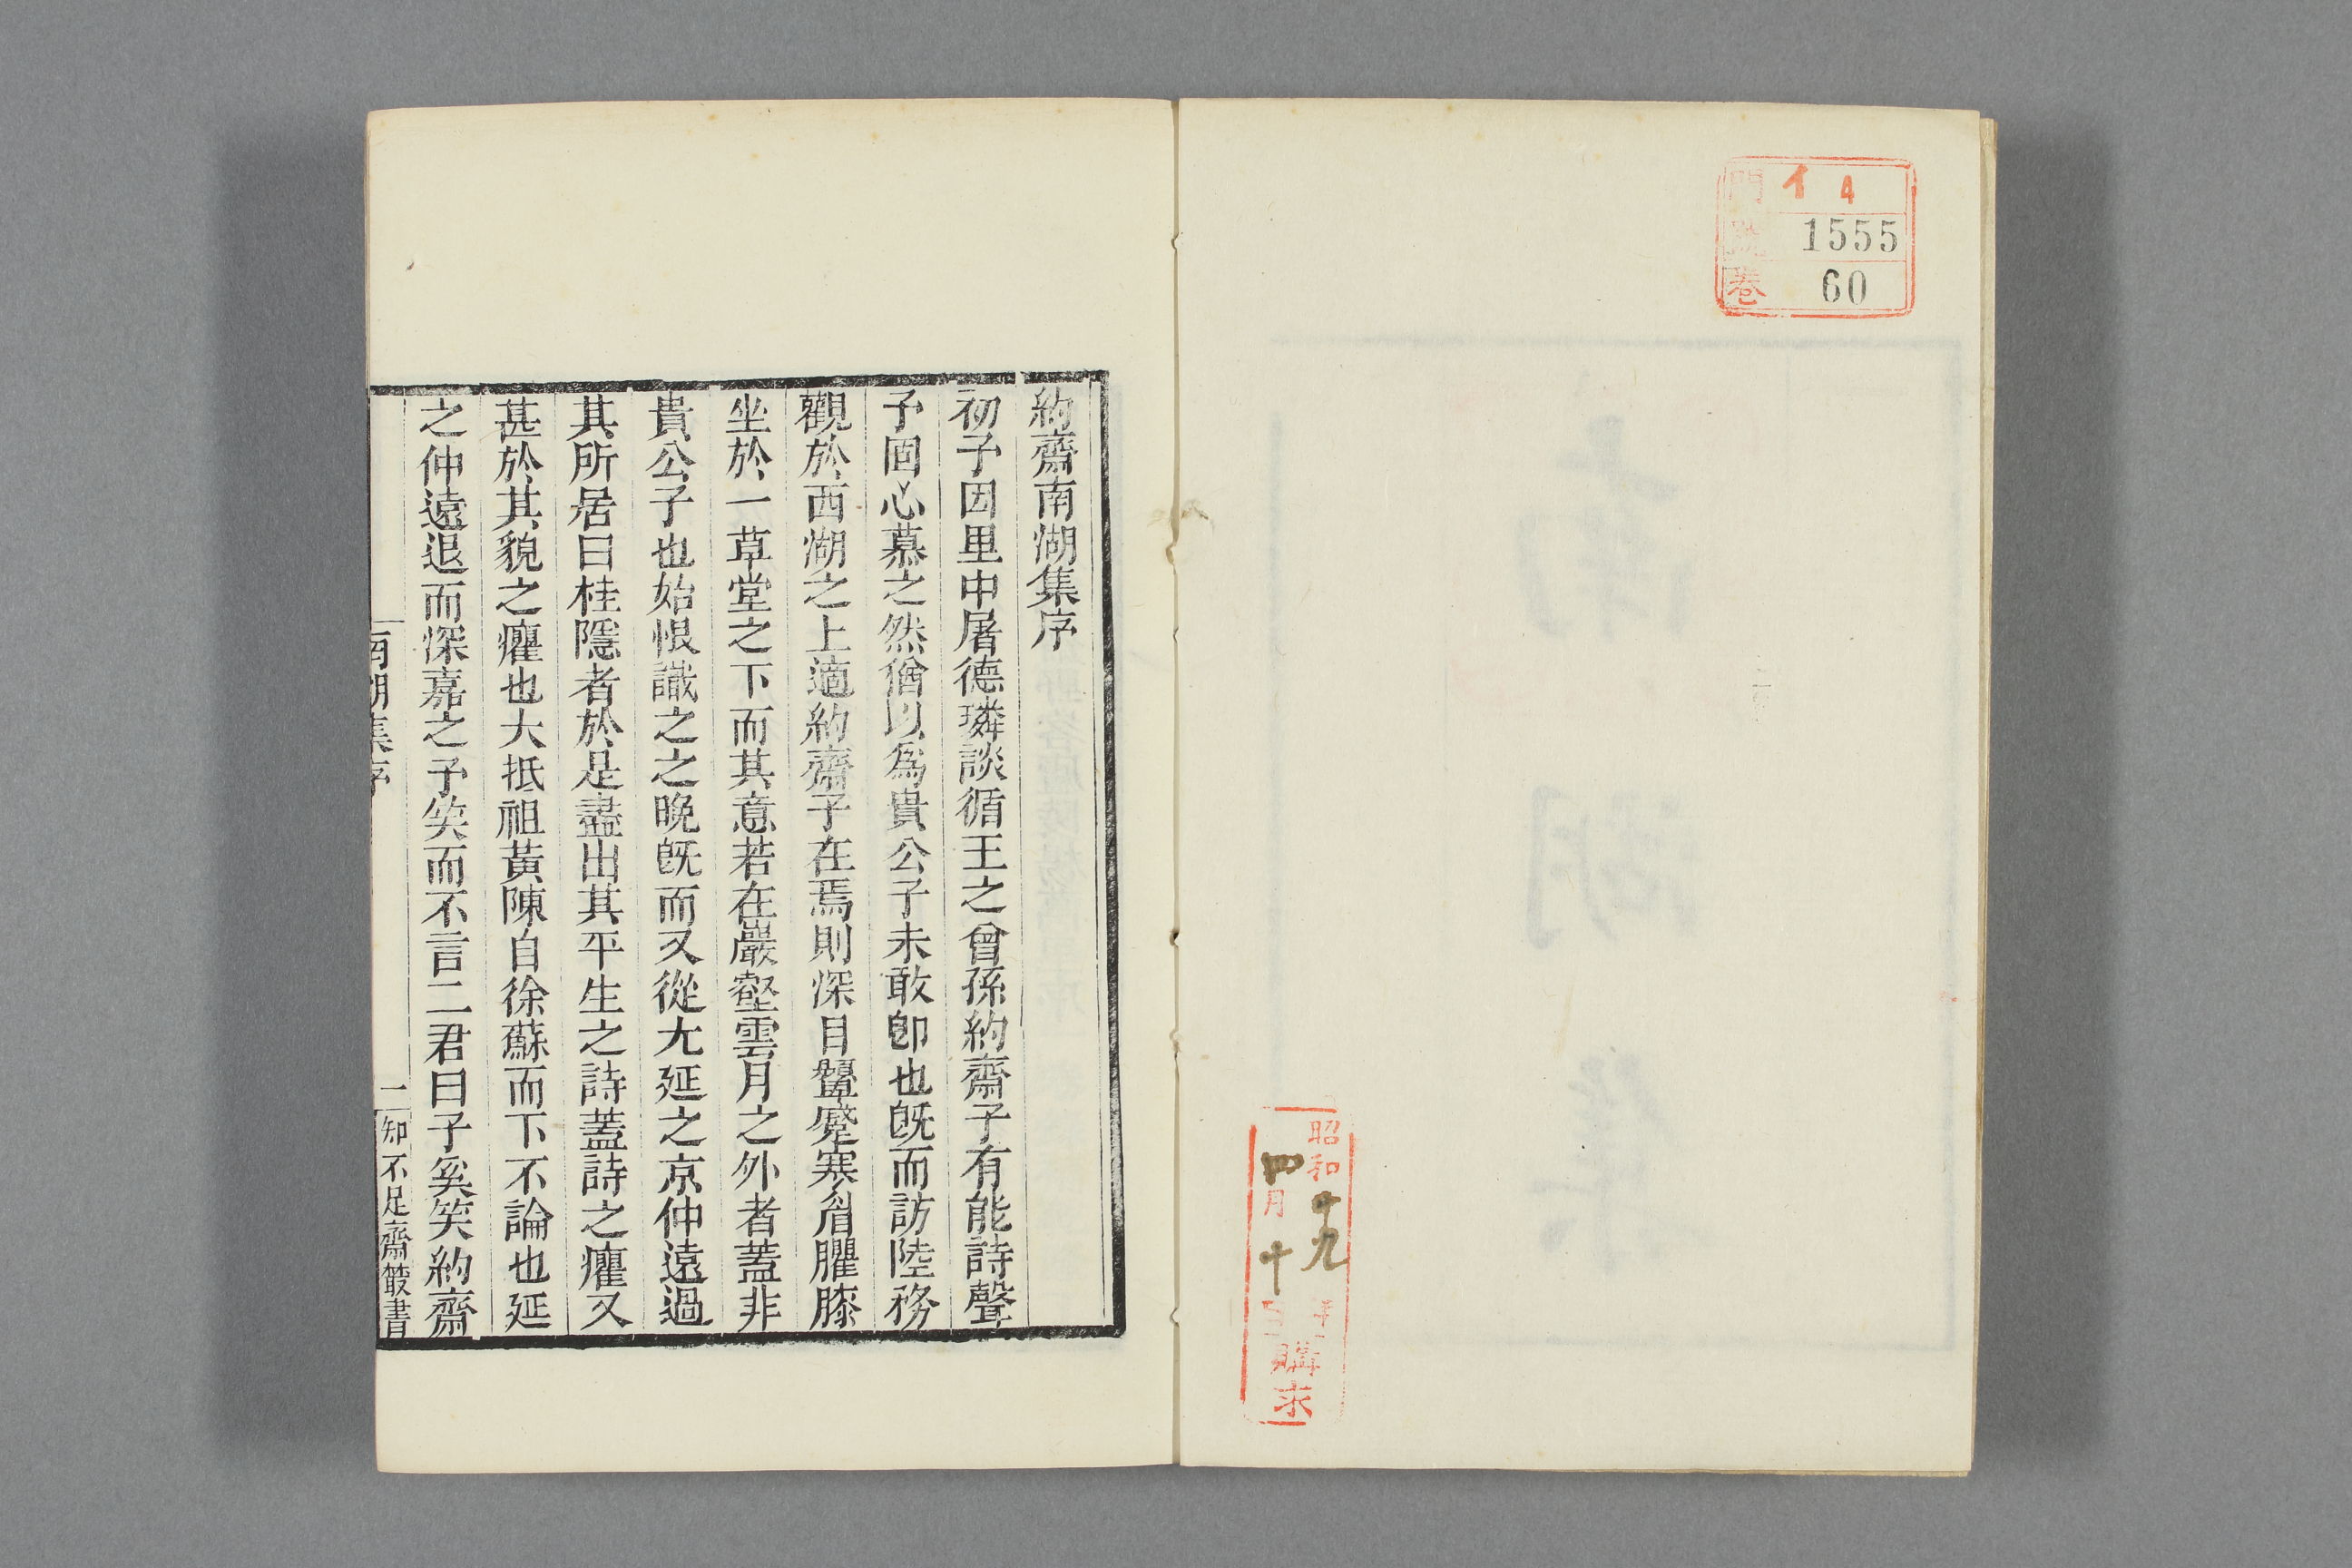 門 イ 4
號 1555
卷 60
昭和十九年
四月十三日
購求
約齋南湖集序
初予因里中屠德璘談循王之曾孫約齋子有能詩聲
予固心慕之然猶以爲貴公子未敢卽也旣而訪陸務
觀於西湖之上適約齋子在焉則深目顰蹙寒眉臞膝
坐於一草堂之下而其意若在巖壑雲月之外者蓋非
貴公子也始恨識之之晚旣而又從尤延之京仲遠過
其所居曰桂隱者於是盡出其平生之詩蓋詩之癯又
甚於其貌之癯也大抵祖黃陳自徐蘇而下不論也延
之仲遠退而深嘉之予笑而不言二君曰子奚笑約齋
南湖集序 一 知不足齋叢書